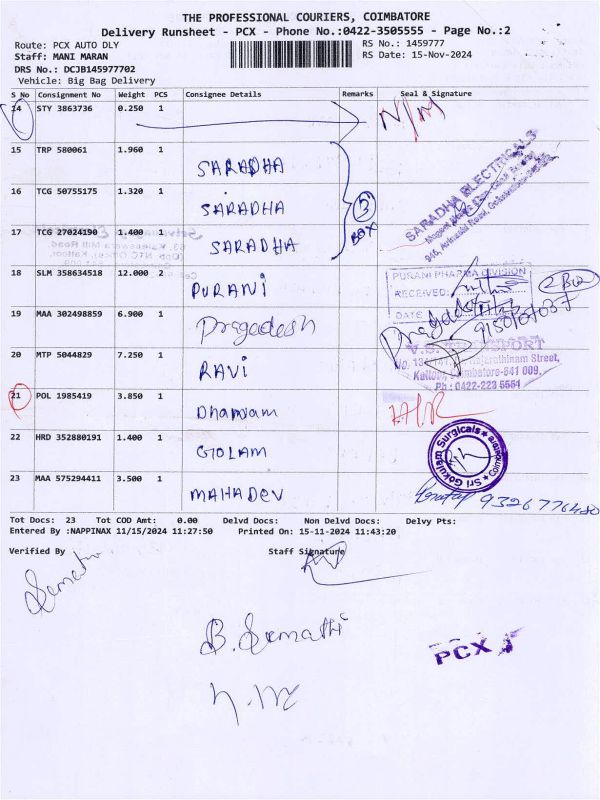 THE PROFESSIONAL COURIERS, COIMBATORE
Delivery Runsheet - PCX - Phone No.:0422-3505555 - Page No.:2
Route: PCX AUTO DLY RS No.: 1459777
Staff: MANI MARAN RS Date: 15-Nov-2024
DRS No.: DCJB145977702
Vehicle: Big Bag Delivery
S No Consignment No Weight PCS Consignee Details Remarks Seal & Signature
14 STY 3863736 0.250 1
15 TRP 580061 1.960 1 SARADHA
SARADHA ELECTRICALS
16 TCG 50755175 1.320 1 SARADHA
3 BOX
17 TCG 27024190 1.400 1 SARADHA
18 SLM 358634518 12.000 2 PURANI
PURANI PHARMA DIVISION
RECEIVED:
DATE
2 Box
19 MAA 302498859 6.900 1 Pragadesh
20 MTP 5044829 7.250 1 RAVI
Street,
Coimbatore-641 009.
Ph : 0422-223 5561
21 POL 1985419 3.850 1 Dhanvam
22 HRD 352880191 1.400 1 GIOLAM
Sri Gokulam Surgicals
23 MAA 575294411 3.500 1 MAHADEV
9326776480
Tot Docs: 23 Tot COD Amt: 0.00 Delvd Docs: Non Delvd Docs: Delvy Pts:
Entered By :NAPPINAX 11/15/2024 11:27:50 Printed On: 15-11-2024 11:43:20
Verified By Staff Signature
B. Sumathi
PCX